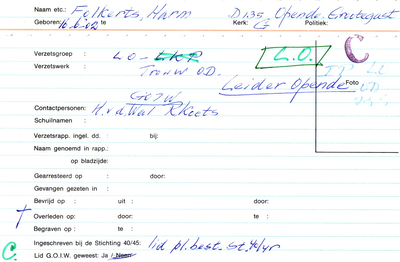 Naam etc.: Folkerts, Harm D135, Opende, Grootegast
Geboren: 16-6-02 te Kerk: G Politiek:
Verzetsgroep : LO - LKP L.O. C
Verzetswerk : Trouw O.D.
Leider Opende Foto
G.O.I.W.
Contactpersonen: H.v.d.Wal R Keets
Schuilnamen :
Verzetsrapp. ingel. dd. : bij:
Naam genoemd in rapp.:
op bladzijde:
Gearresteerd op : door:
Gevangen gezeten in :
Bevrijd op : uit : door:
† Overleden op: door: te :
Begraven op : te :
Ingeschreven bij de Stichting 40/45: lid pl. best. St. 40/45
C. Lid G.O.I.W. geweest: Ja / Neen